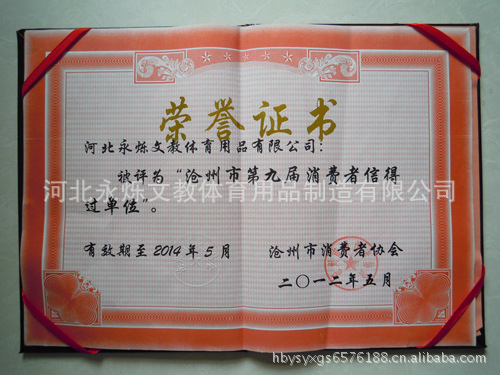 荣誉证书
河北永烁文教体育用品有限公司:
被评为“沧州市第九届消费者信得
河北永烁文教体育用品制造有限公司
过单位”。
有效期至2014年5月
沧州市消费者协会
二〇一二年五月
hbysyxgs6576188.cn.alibaba.com